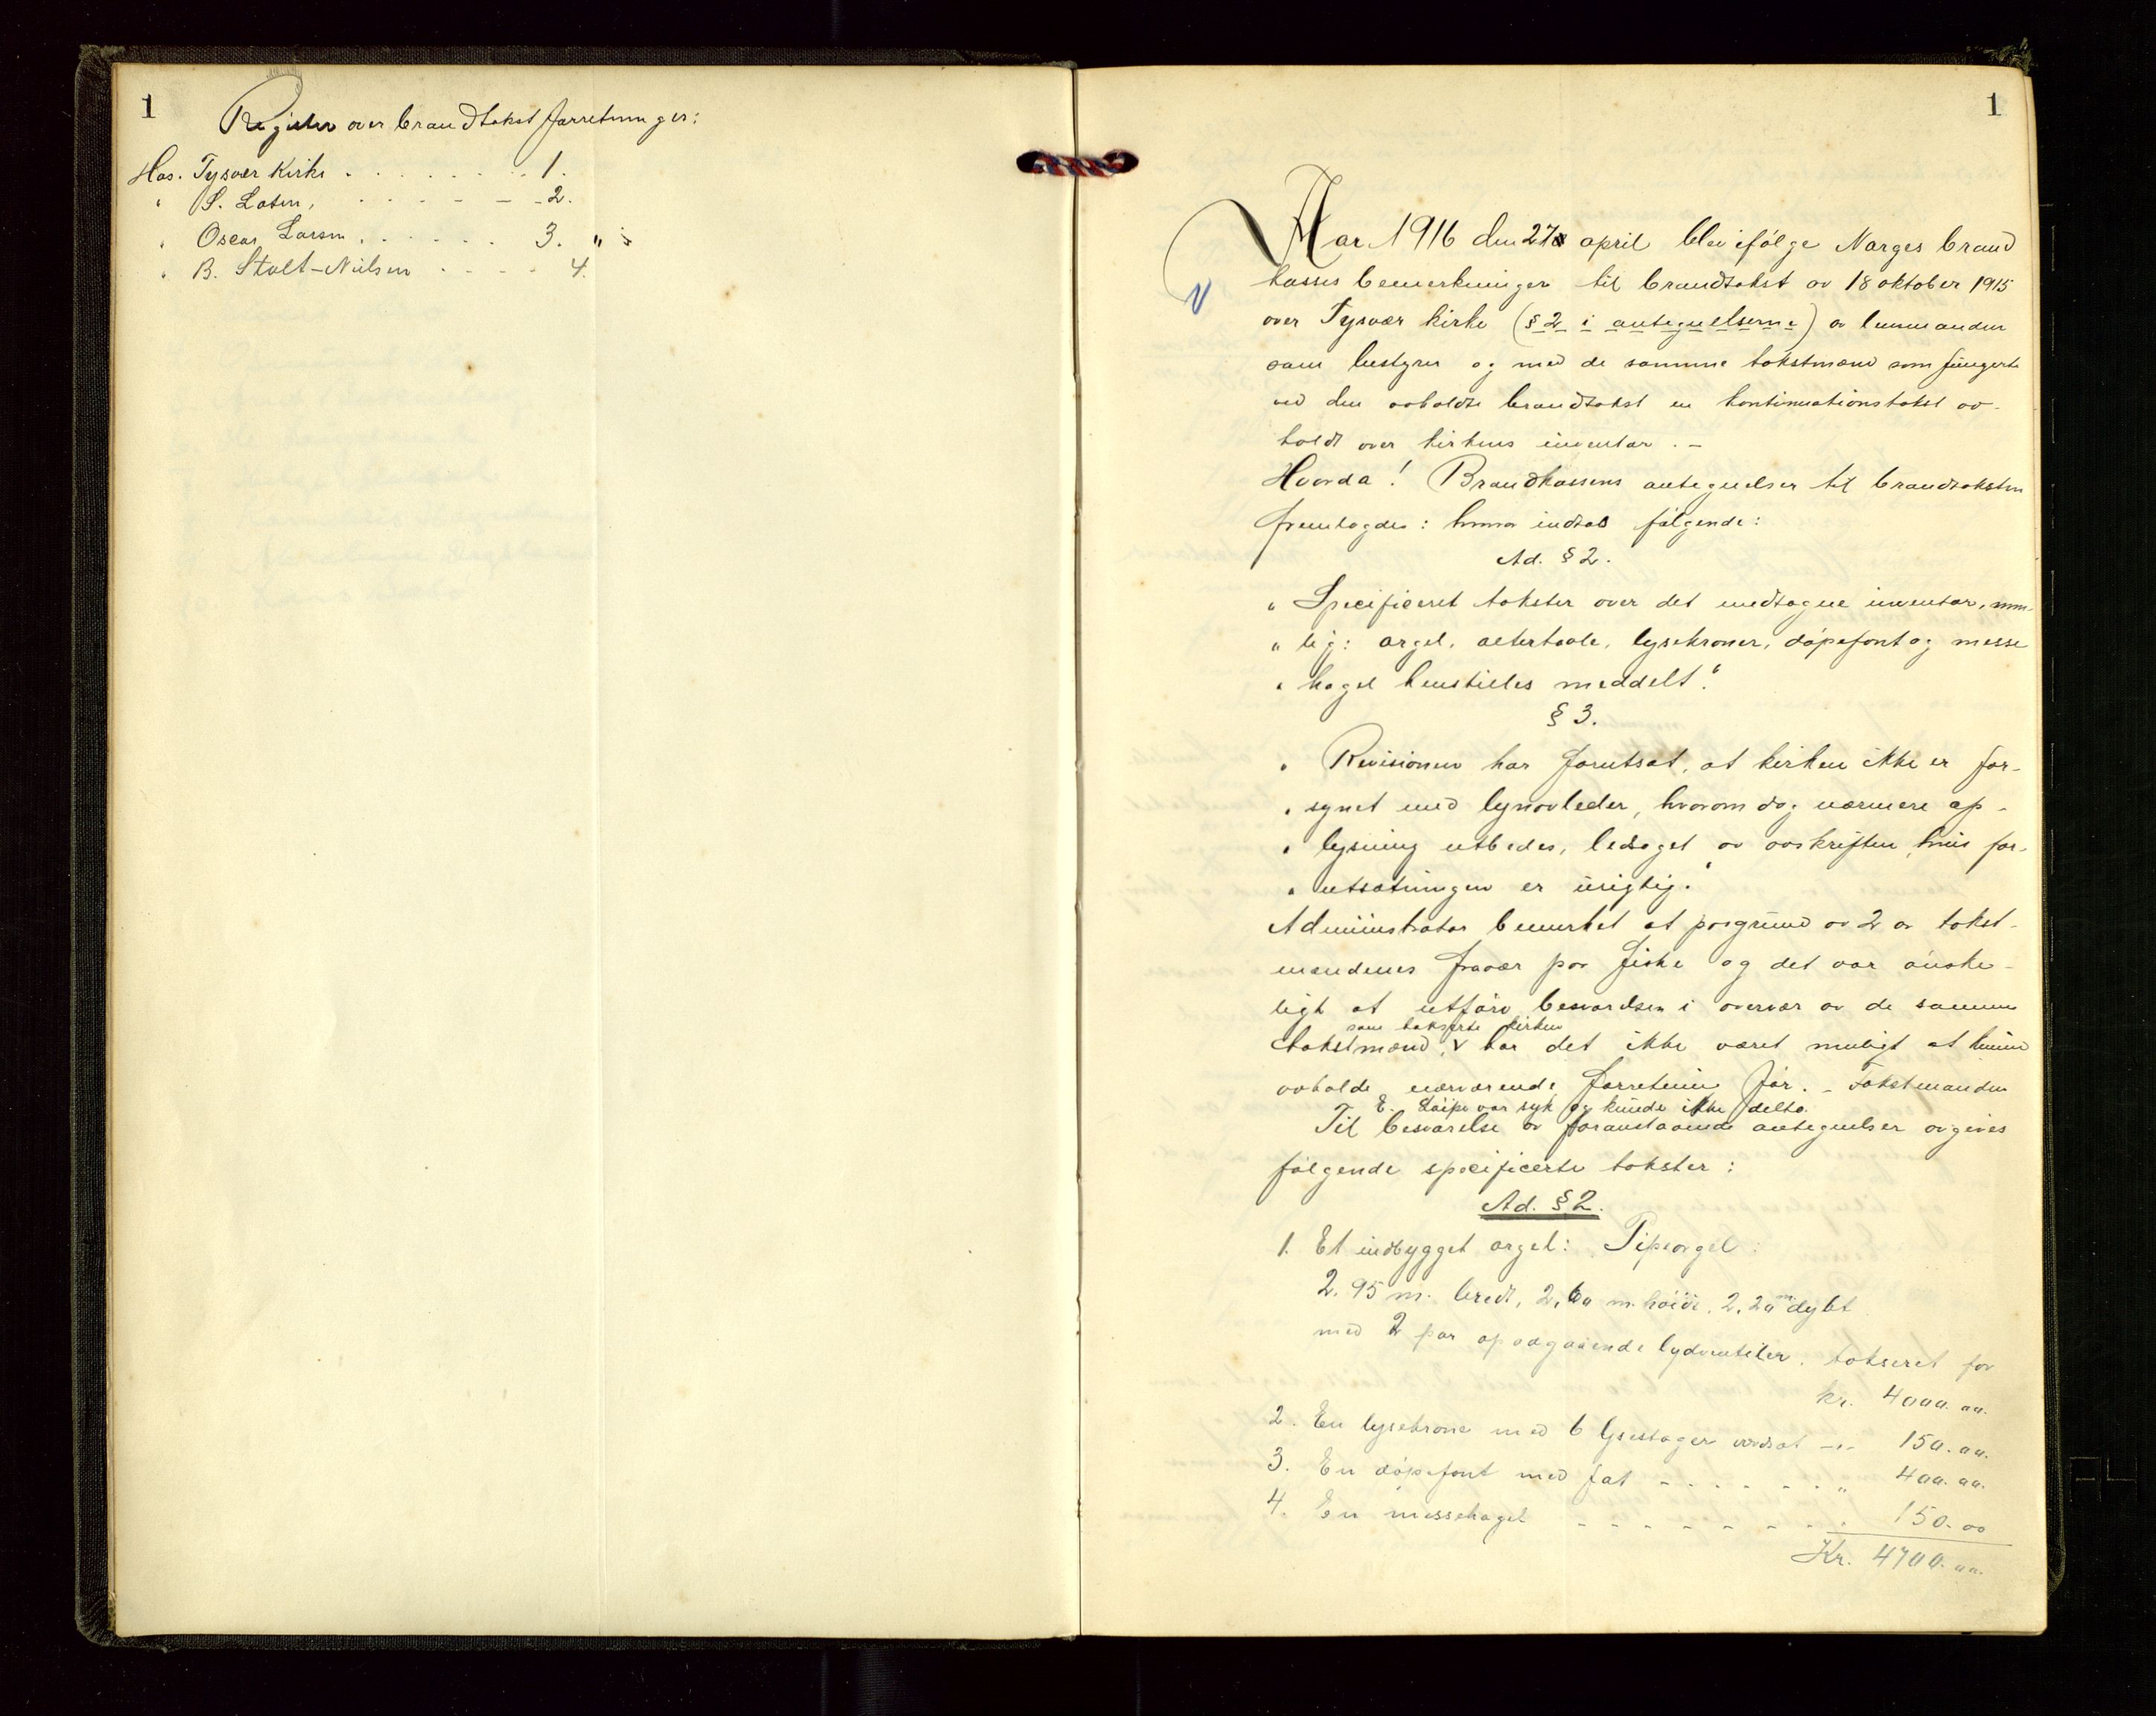 1
Register over brandtakst forretninger:
Hos. Tysvær Kirke . . . . . . . . 1.
" S. Løten, . . . . - - - 2.
" Oscar Larsen . . . . . . 3. "
" B. Stolt-Nielsen . . . . 4.
1
Aar 1916 den 27 april blev ifølge Norges brand
kasses bemerkninger til brandtakst av 18 oktober 1915
over Tysvær kirke (§ 2 i antegnelserne) av lensmanden
som bestyrer og med de samme takstmænd som fungerte
ved den avholdte brandtakst en kontinuationstakst av-
holdt over kirkens inventar. -
Hvorda! Brandkassens antegnelser til brandtaksten
fremlagdes: hvorav indtas følgende:
Ad. § 2.
" Specificeret takster over det medtagne inventar, nem-
" lig: orgel, altertavle, lysekroner, døpefont og messe
" hagel henstilles meddelt."
§ 3.
" Revisionen har forutsat, at kirken ikke er for-
" synet med lynavleder, hvorom dog nærmere op-
" lysning utbedes, ledsaget av avskriften, hvis for-
" utsætningen er urigtig."
Administrator bemerket at paagrund av 2 av takst-
mændenes fravær paa fiske og det var ønske-
ligt at utføre besvarelsen i overvær av de samme
som takserte kirken
takstmænd, v har det ikke været muligt at kunne
avholde nærværende forretning før. - Takstmanden
E. Støipe var syk og kunde ikke delta.
Til besvarelse av foranstaaende antegnelser avgives
følgende specificerte takster:
Ad. § 2.
1. Et indbygget orgel: Pipeorgel:
2,95 m. bredt, 2,60 m. høide, 2,20 m dybt
med 2 par opadgaaende lydventiler, takseret for
kr. 4000.00.
2. En lysekrone med 6 lysestager værdsat -"- 150.00.
3. En døpefont med fat - . . . . . " 400.00.
4. En messehagel - - - - - - - - . 150.00
Kr. 4700.00.